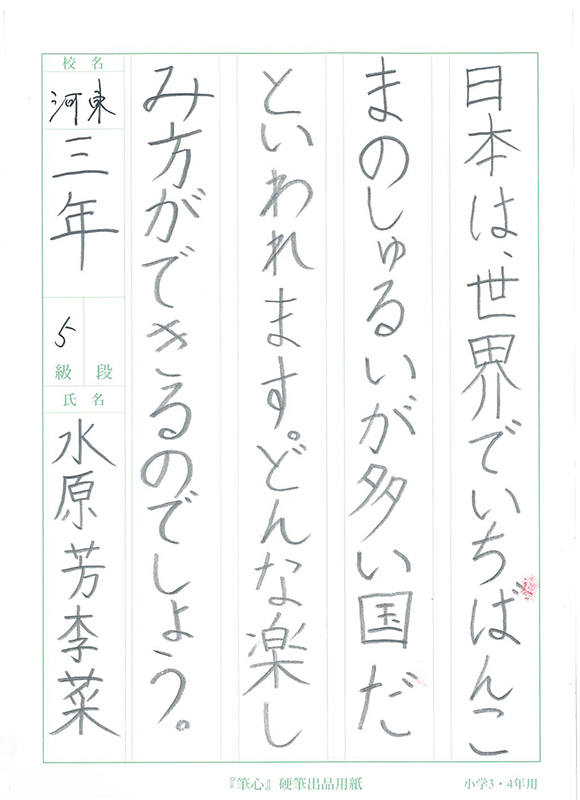 日本は、世界でいちばんこ
まのしゅるいが多い国だ
といわれます。どんな楽し
み方ができるのでしょう。
校名
河東
三年
5
級
段
氏名
水原芳李菜
『筆心』硬筆出品用紙
小学3・4年用